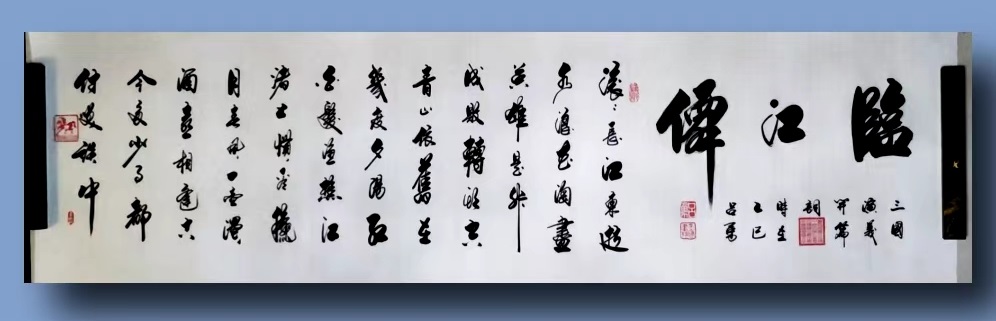 臨江僊
三國
演義
開篇
詞
時在
乙巳
滚〻長江東逝
水浪花淘盡
英雄是非
成敗轉頭空
青山依舊在
幾度夕陽紅
白髮漁樵江
渚上慣看龝
月春風一壺濁
酒喜相逢古
今多少事都
付笑談中